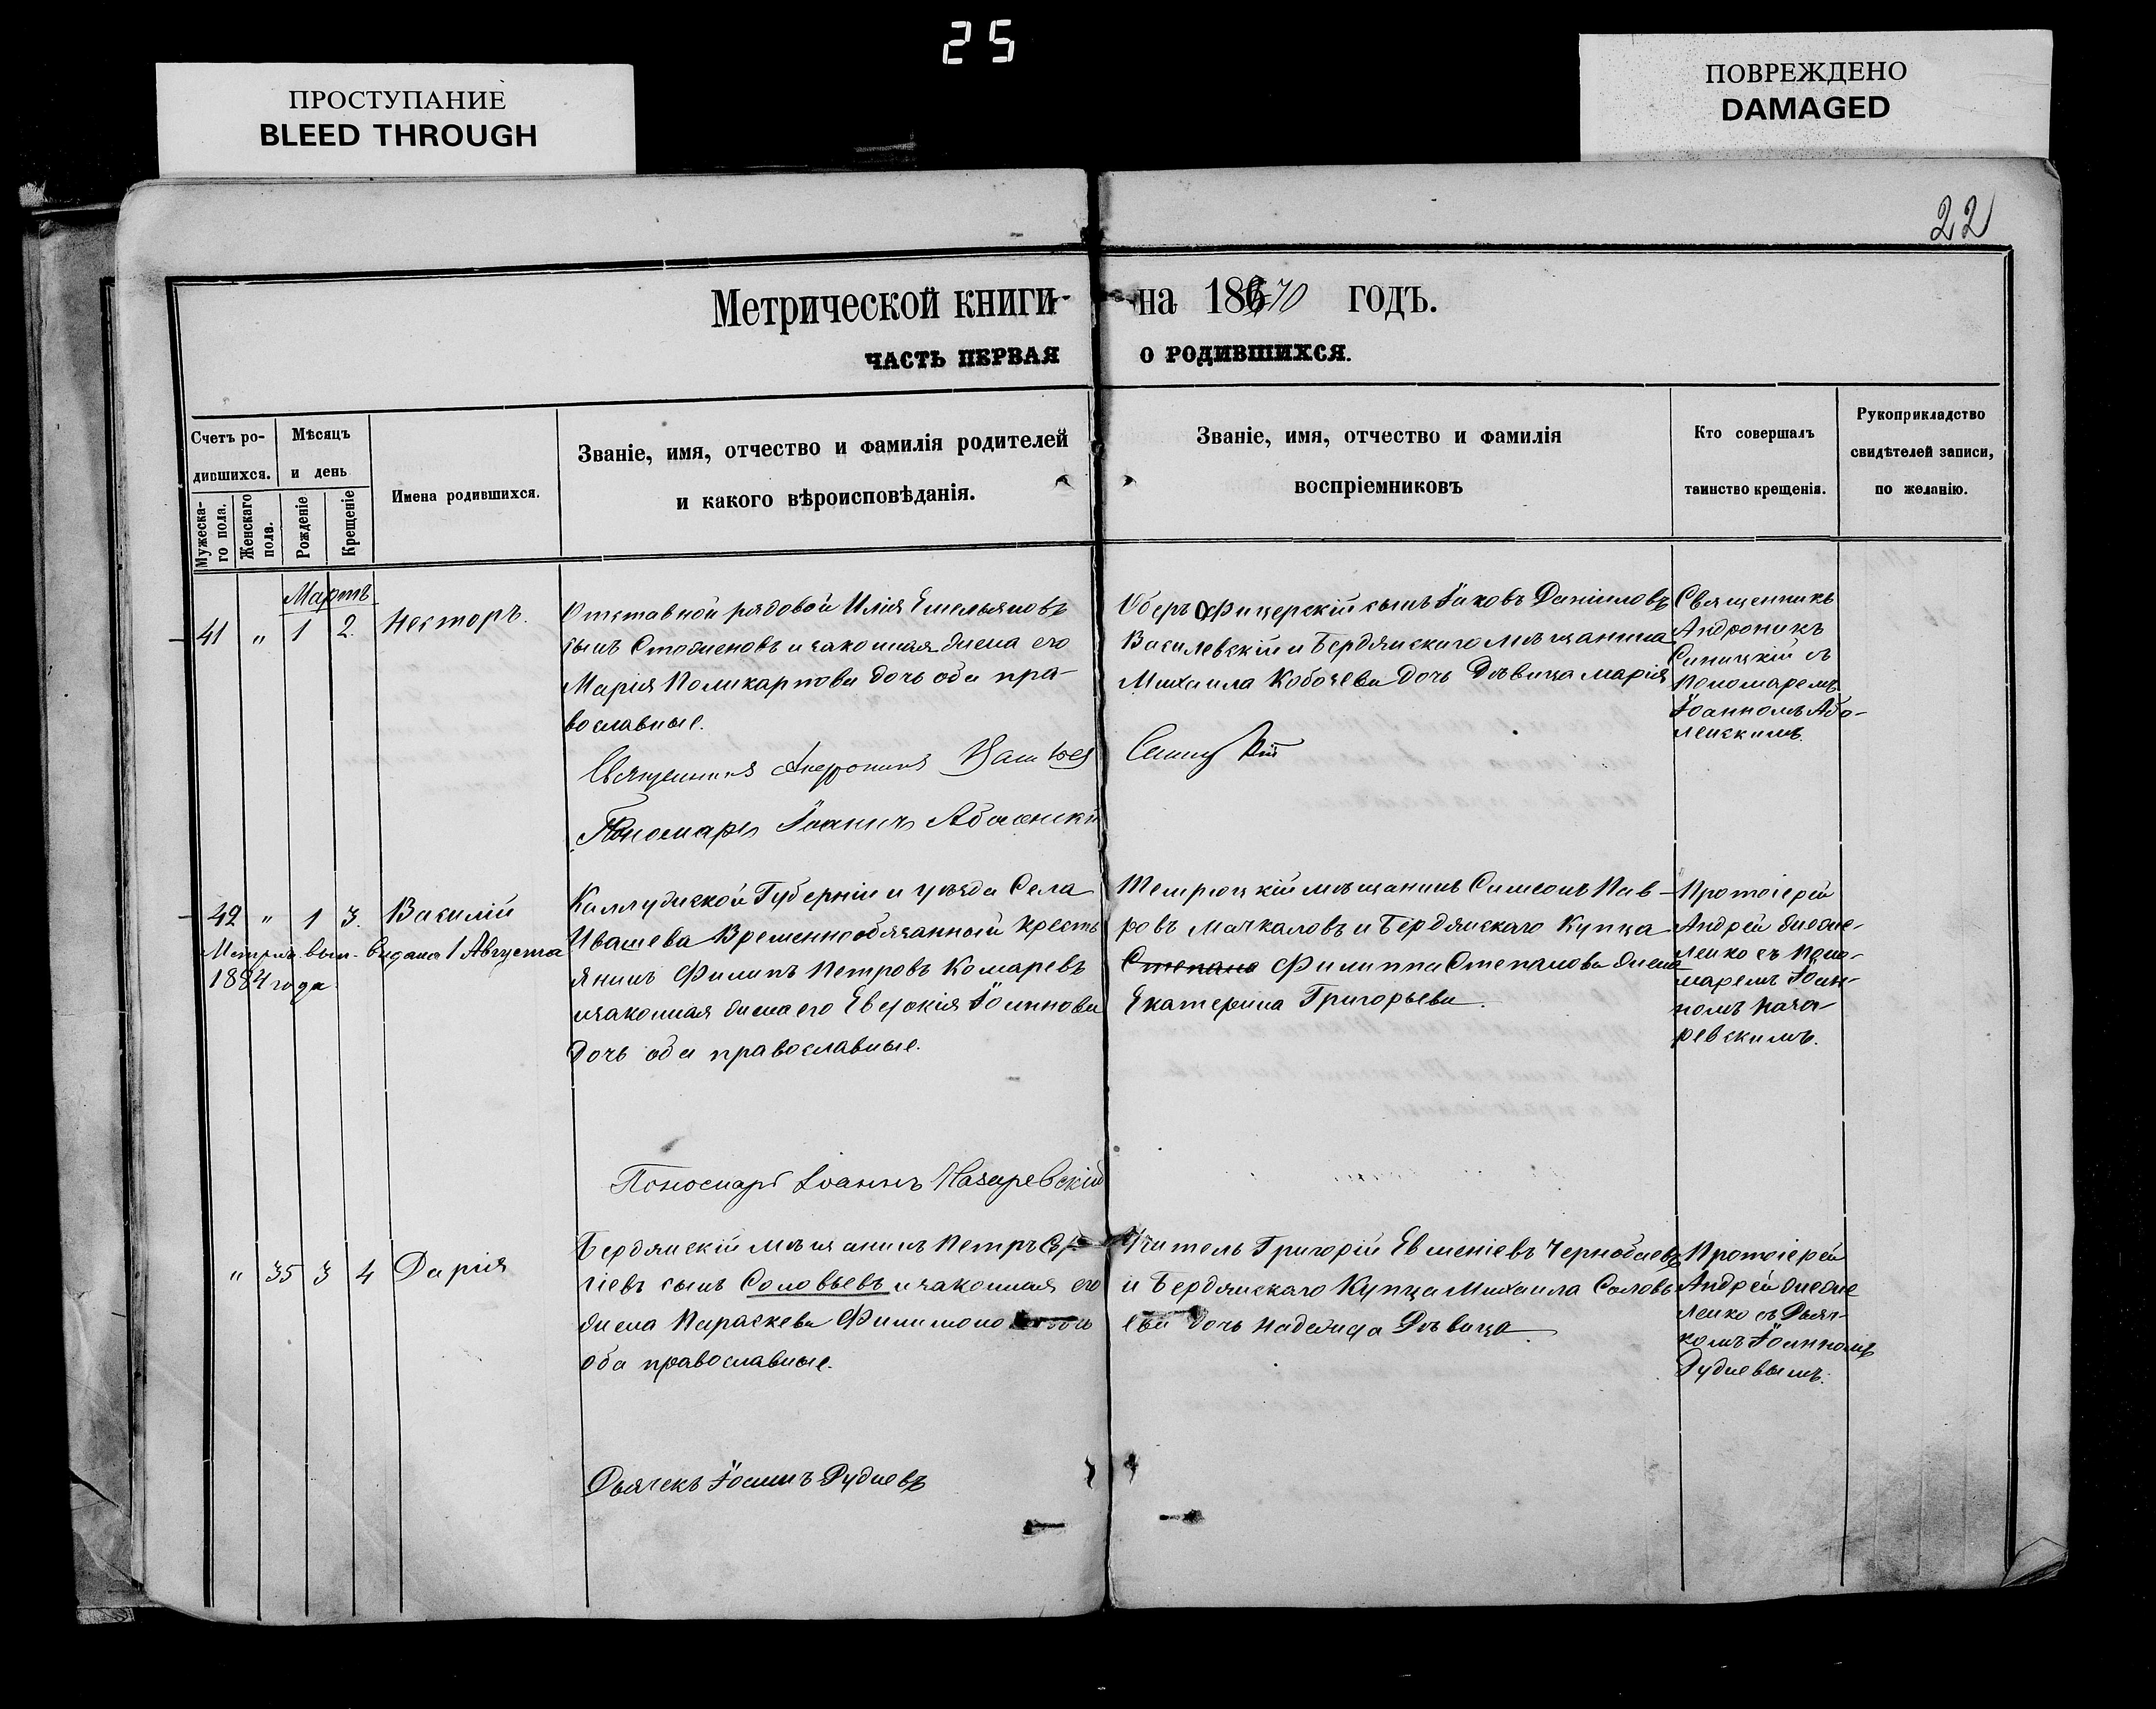 25
ПРОСТУПАНИЕ
BLEED THROUGH
ПОВРЕЖДЕНО
DAMAGED
22
Метрической книги на 1870 годъ.
ЧАСТЬ ПЕРВАЯ О РОДИВШИХСЯ.
Счетъ ро-
дившихся.
Мужеска-
го пола.
Женскаго
пола.
Мѣсяцъ
и день
Рожденіе
Крещеніе
Имена родившихся.
Званіе, имя, отчество и фамилія родителей
и какого вѣроисповѣданія.
Званіе, имя, отчество и фамилія
воспріемниковъ
Кто совершалъ
таинство крещенія.
Рукоприкладство
свидѣтелей записи,
по желанію.
Мартъ
41 " 1 2. Несторъ.
Отставной рядовой Илія Емельяновъ
сынъ и законная жена его
Марія Поликарпова дочь оба пра-
вославные.
Оберъ Офицерскій сынъ Іаковъ Даніиловъ
Василевскій и Бердянскаго мѣщанина
Михаила дочь Дѣвица Марія
Священникъ
Андроникъ
Синицкій съ
Пономаремъ
Іоанномъ Або-
ленскимъ.
Священникъ Андроникъ
Пономарь Іоаннъ
42 " 1 3. Василій
выдана 1 Августа
1884 года
Губерніи и уѣзда Села
Ивашева Временнообязанный кресть
янинъ Филипъ Петровъ Комаревъ
и законная жена его Евдокія Іоаннова
дочь оба православные.
Темрюцкій мѣщанинъ Симеонъ
ровъ и Бердянскаго Купца
Степана Филиппа Степанова жена
Екатерина Григорьева.
Протоіерей
Андрей Днѣже-
ленко съ Поно-
маремъ Іоан-
номъ Наза-
ревскимъ.
Пономарь Іоаннъ Назаревскій
" 35 3 4 Дарія
Бердянскій мѣщанинъ Петръ
гіевъ сынъ Соловьевъ и законная его
жена Параскева дочь
оба православные.
Учитель Григорій Евменіевъ
и Бердянскаго Купца Михаила Соловь
ева дочь Надежда Дѣвица.
Протоіерей
Андрей
ленко съ Дьяч-
комъ Іоанномъ
Рудневымъ.
Дьячекъ Іоаннъ Рудневъ